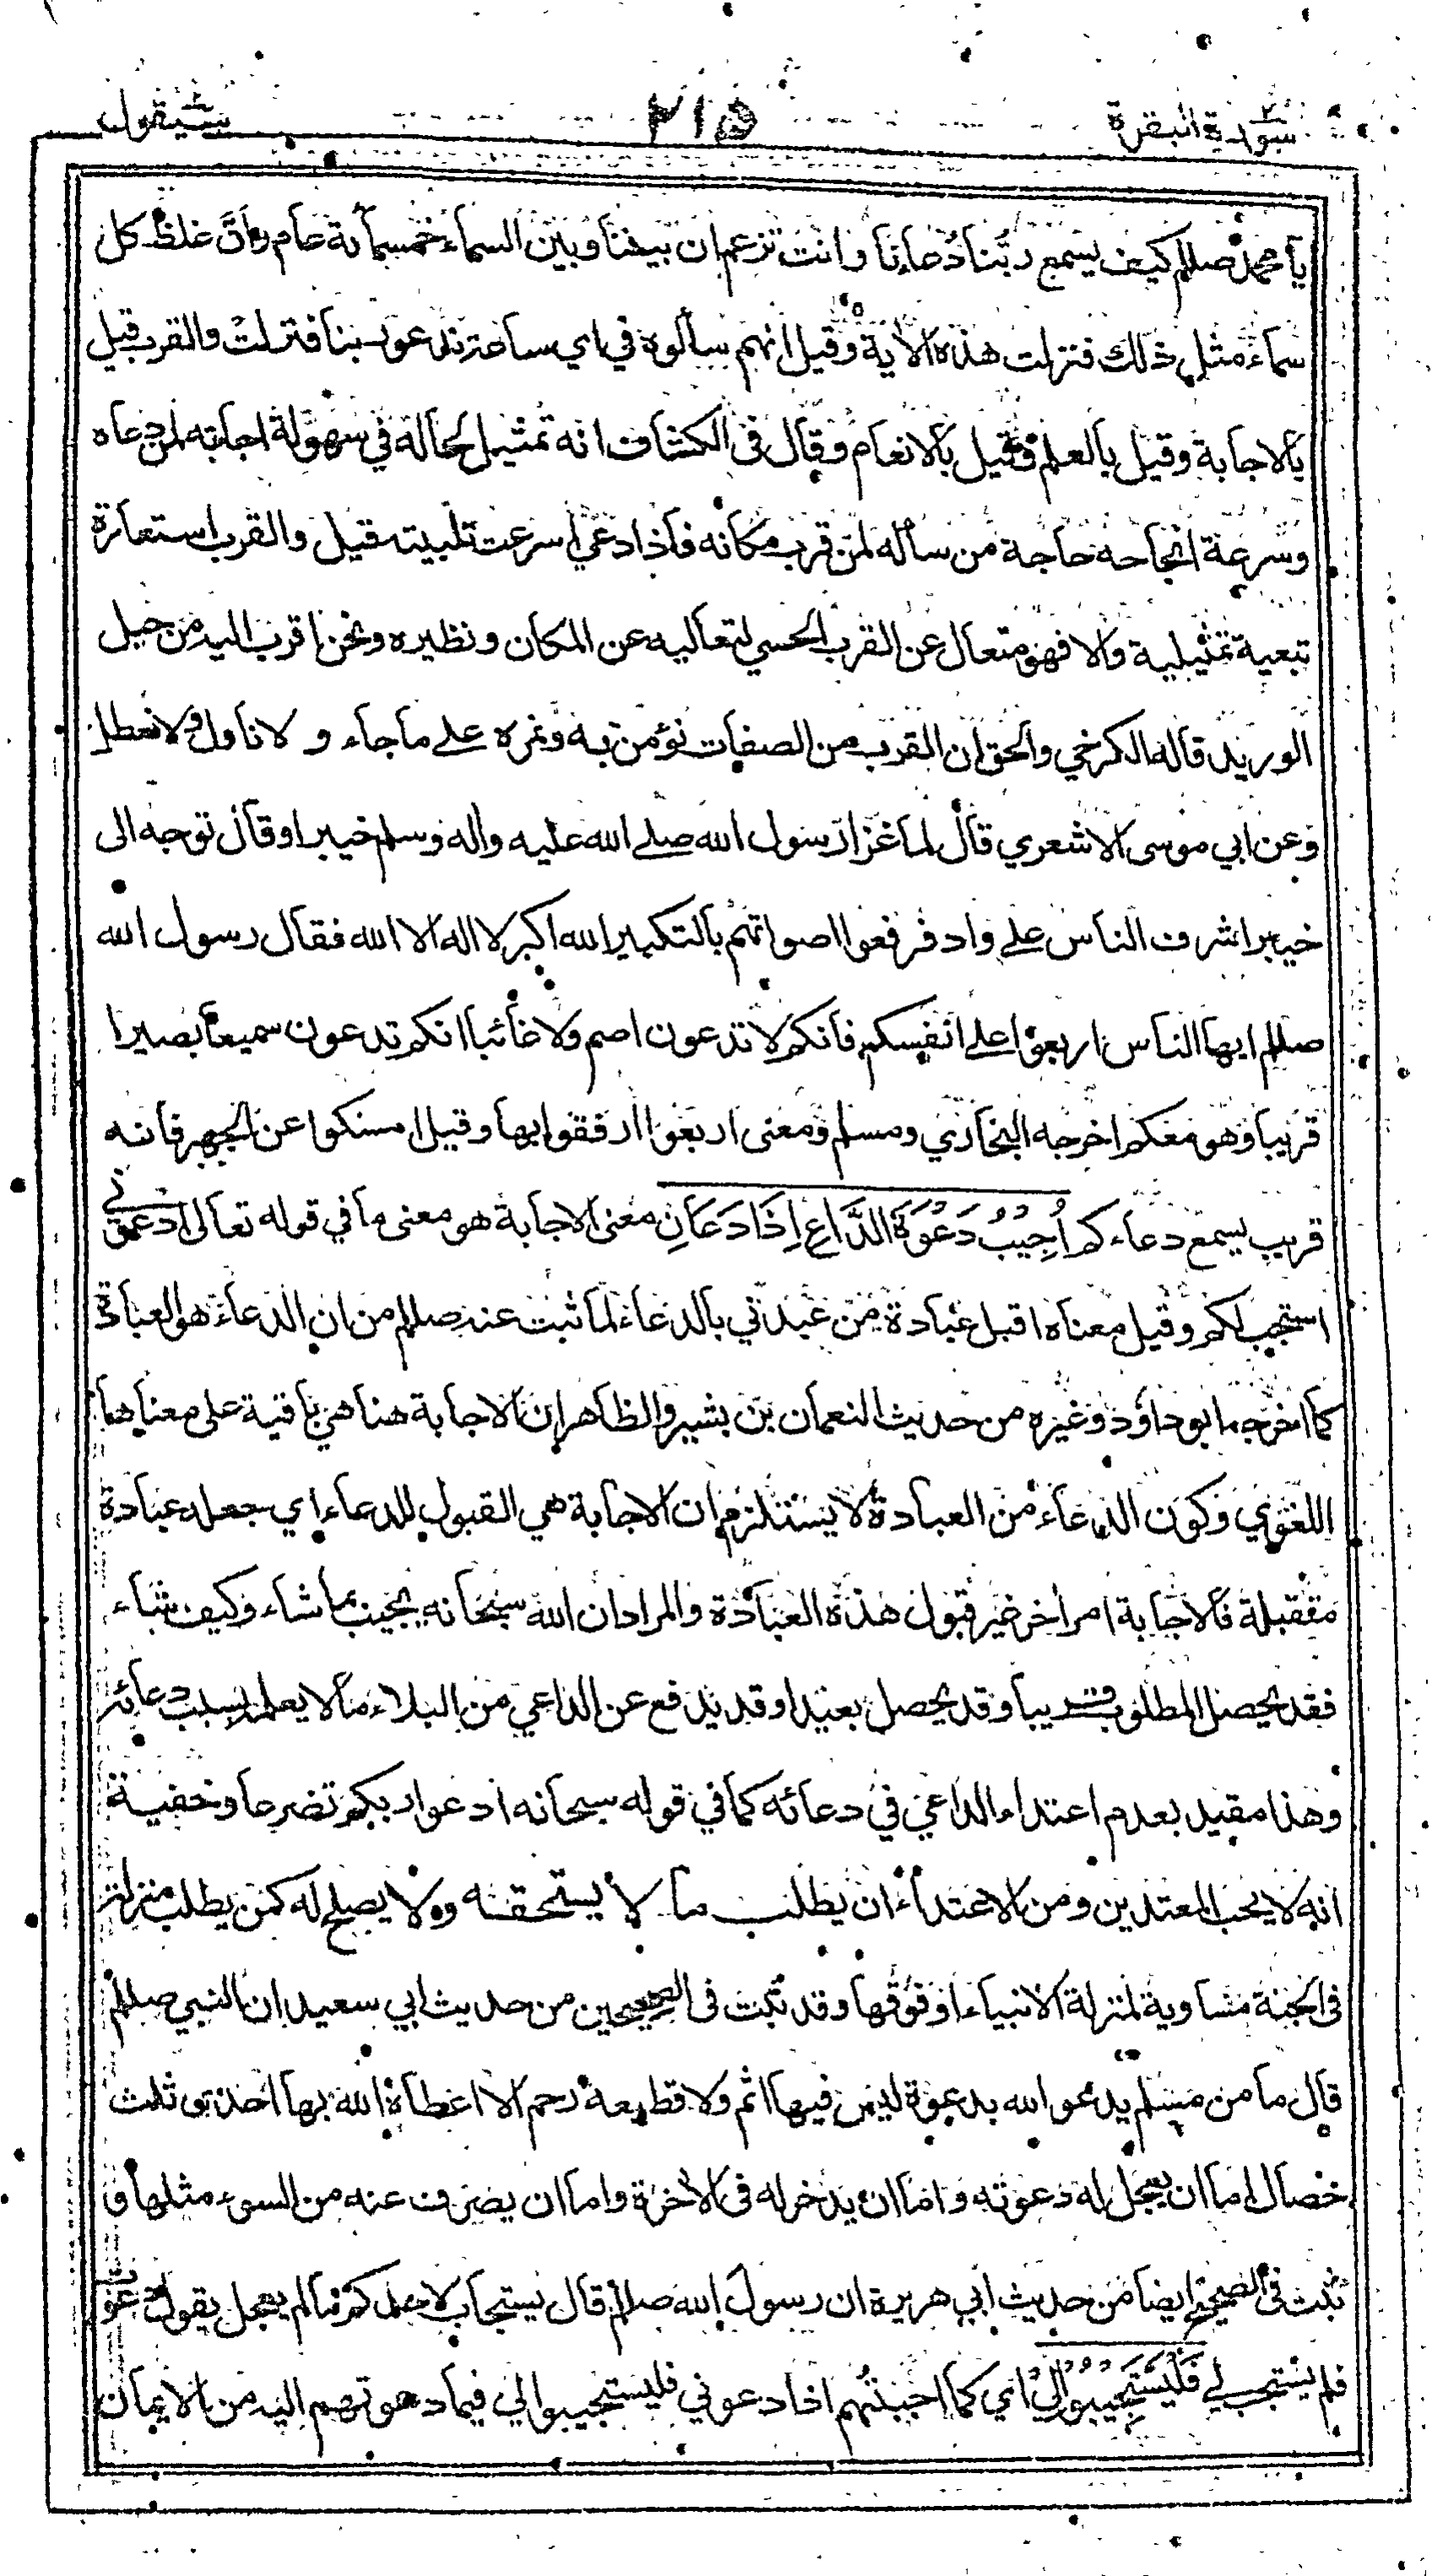 سورة البقرة ٢١٥ سيقول
يا محمد صللم كيف يسمع ربنا دعاءنا وانت تزعم ان بيننا وبين السماء خمسمائة عام وان غلظ كل
سماء مثل ذلك فنزلت هذه الاية وقيل انهم سألوه في اي ساعة ندعو ربنا فنزلت والقرب قيل
بالاجابة وقيل بالعلم وقيل بالانعام وقال في الكشاف انه تمثيل لحاله في سهولة اجابته لمن دعاه
وسرعة انجاحه حاجة من سأله لمن قرب مكانه فاذا دعي اسرعت تلبيته قيل والقرب استعارة
تبعية تمثيلية والا فهو متعال عن القرب الحسي لتعاليه عن المكان ونظيره ونحن اقرب اليه من حبل
الوريد قاله الكرخي والحق ان القرب من الصفات نؤمن به ونمره على ما جاء و لا ناول ولا نعطل
وعن ابي موسى الاشعري قال لما غزا رسول الله صلى الله عليه واله وسلم خيبر او قال توجه الى
خيبر اشرف الناس على واد فرفعوا اصواتهم بالتكبير الله اكبر لا اله الا الله فقال رسول الله
صللم ايها الناس اربعوا على انفسكم فانكم لا تدعون اصم ولا غائبا انكم تدعون سميعا بصيرا
قريبا وهو معكم اخرجه البخاري ومسلم ومعنى اربعوا ارفقوا بها وقيل امسكوا عن الجهر فانه
قريب يسمع دعاءكم اُجِيْبُ دَعْوَةَ الدَّاعِ اِذَا دَعَانِ معنى الاجابة هو معنى ما في قوله تعالى ادعوني
استجب لكم وقيل معناه اقبل عبادة من عبدني بالدعاء لما ثبت عنه صللم من ان الدعاء هو العبادة
كما اخرجه ابو داؤد وغيره من حديث النعمان بن بشير والظاهر ان الاجابة هنا هي باقية على معناها
اللغوي وكون الدعاء من العبادة لا يستلزم ان الاجابة هي القبول للدعاء اي جعله عبادة
متقبلة فالاجابة امر اخر غير قبول هذه العبادة والمراد ان الله سبحانه يجيب بما شاء وكيف شاء
فقد يحصل المطلوب قريبا وقد يحصل بعيدا وقد يدفع عن الداعي من البلاء ما لا يعلمه بسبب دعائه
وهذا مقيد بعدم اعتداء الداعي في دعائه كما في قوله سبحانه ادعوا ربكم تضرعا وخفية
انه لا يحب المعتدين ومن الاعتداء ان يطلب ما لا يستحقه ولا يصلح له كمن يطلب منزلة
في الجنة مساوية لمنزلة الانبياء او فوقها وقد ثبت في الصحيحين من حديث ابي سعيد ان النبي صللم
قال ما من مسلم يدعو الله بدعوة ليس فيها اثم ولا قطيعة رحم الا اعطاه الله بها احدى ثلث
خصال اما ان يعجل له دعوته واما ان يدخر له في الاخرة واما ان يصرف عنه من السوء مثلها و
ثبت في الصحيح ايضا من حديث ابي هريرة ان رسول الله صللم قال يستجاب لاحدكم ما لم يعجل يقول دعوت
فلم يستجب لي فَلْيَسْتَجِيْبُوْا لِيْ اي كما اجبتهم اذا دعوني فليستجيبوا لي فيما دعوتهم اليه من الايمان